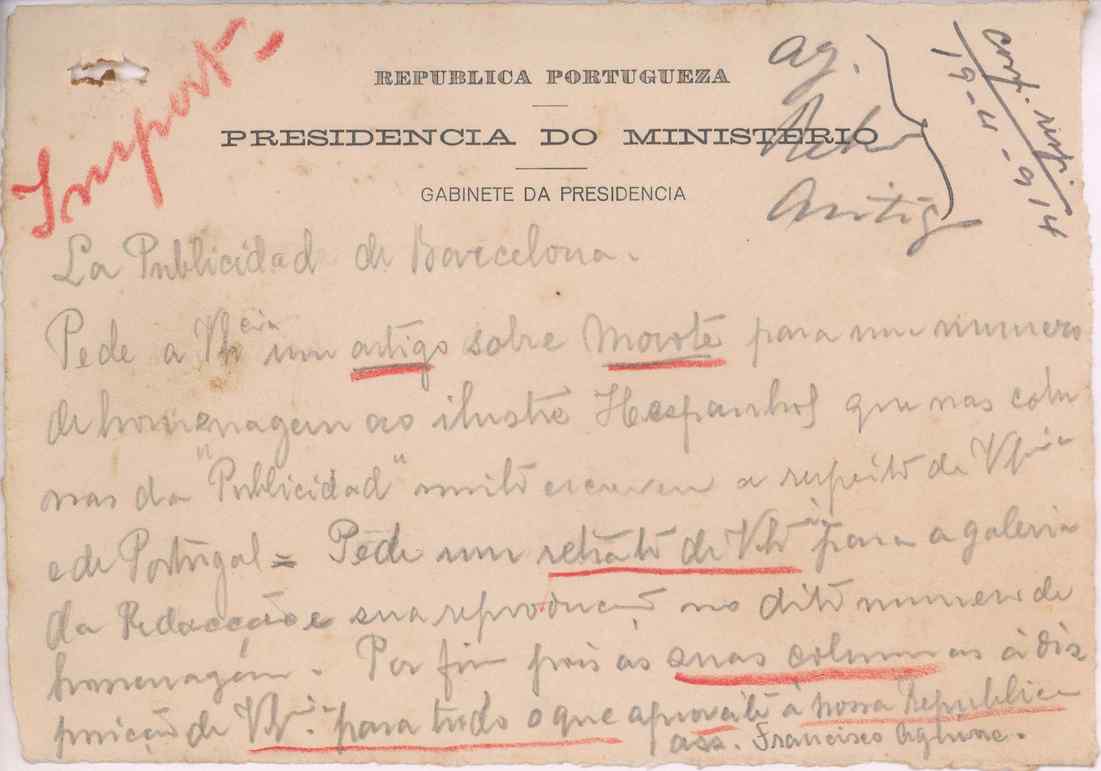 Import.
REPUBLICA PORTUGUEZA
PRESIDENCIA DO MINISTERIO
GABINETE DA PRESIDENCIA
ag.
19-4-914
La Publicidad de Barcelona.
Pede a V Ex.cia um artigo sobre Morote para um numero
de homenagem ao ilustre Hespanhol que nas colu
nas da "Publicidad" muito escreveu a respeito de V Ex.cia
e de Portugal = Pede um retrato de V Ex.cia para a galeria
da Redacção e sua reprodução no dito numero de
homenagem. Por fim pois as suas columnas à dis
posição de V Ex.cia para tudo o que aproveite à nossa Republica
ass. Francisco